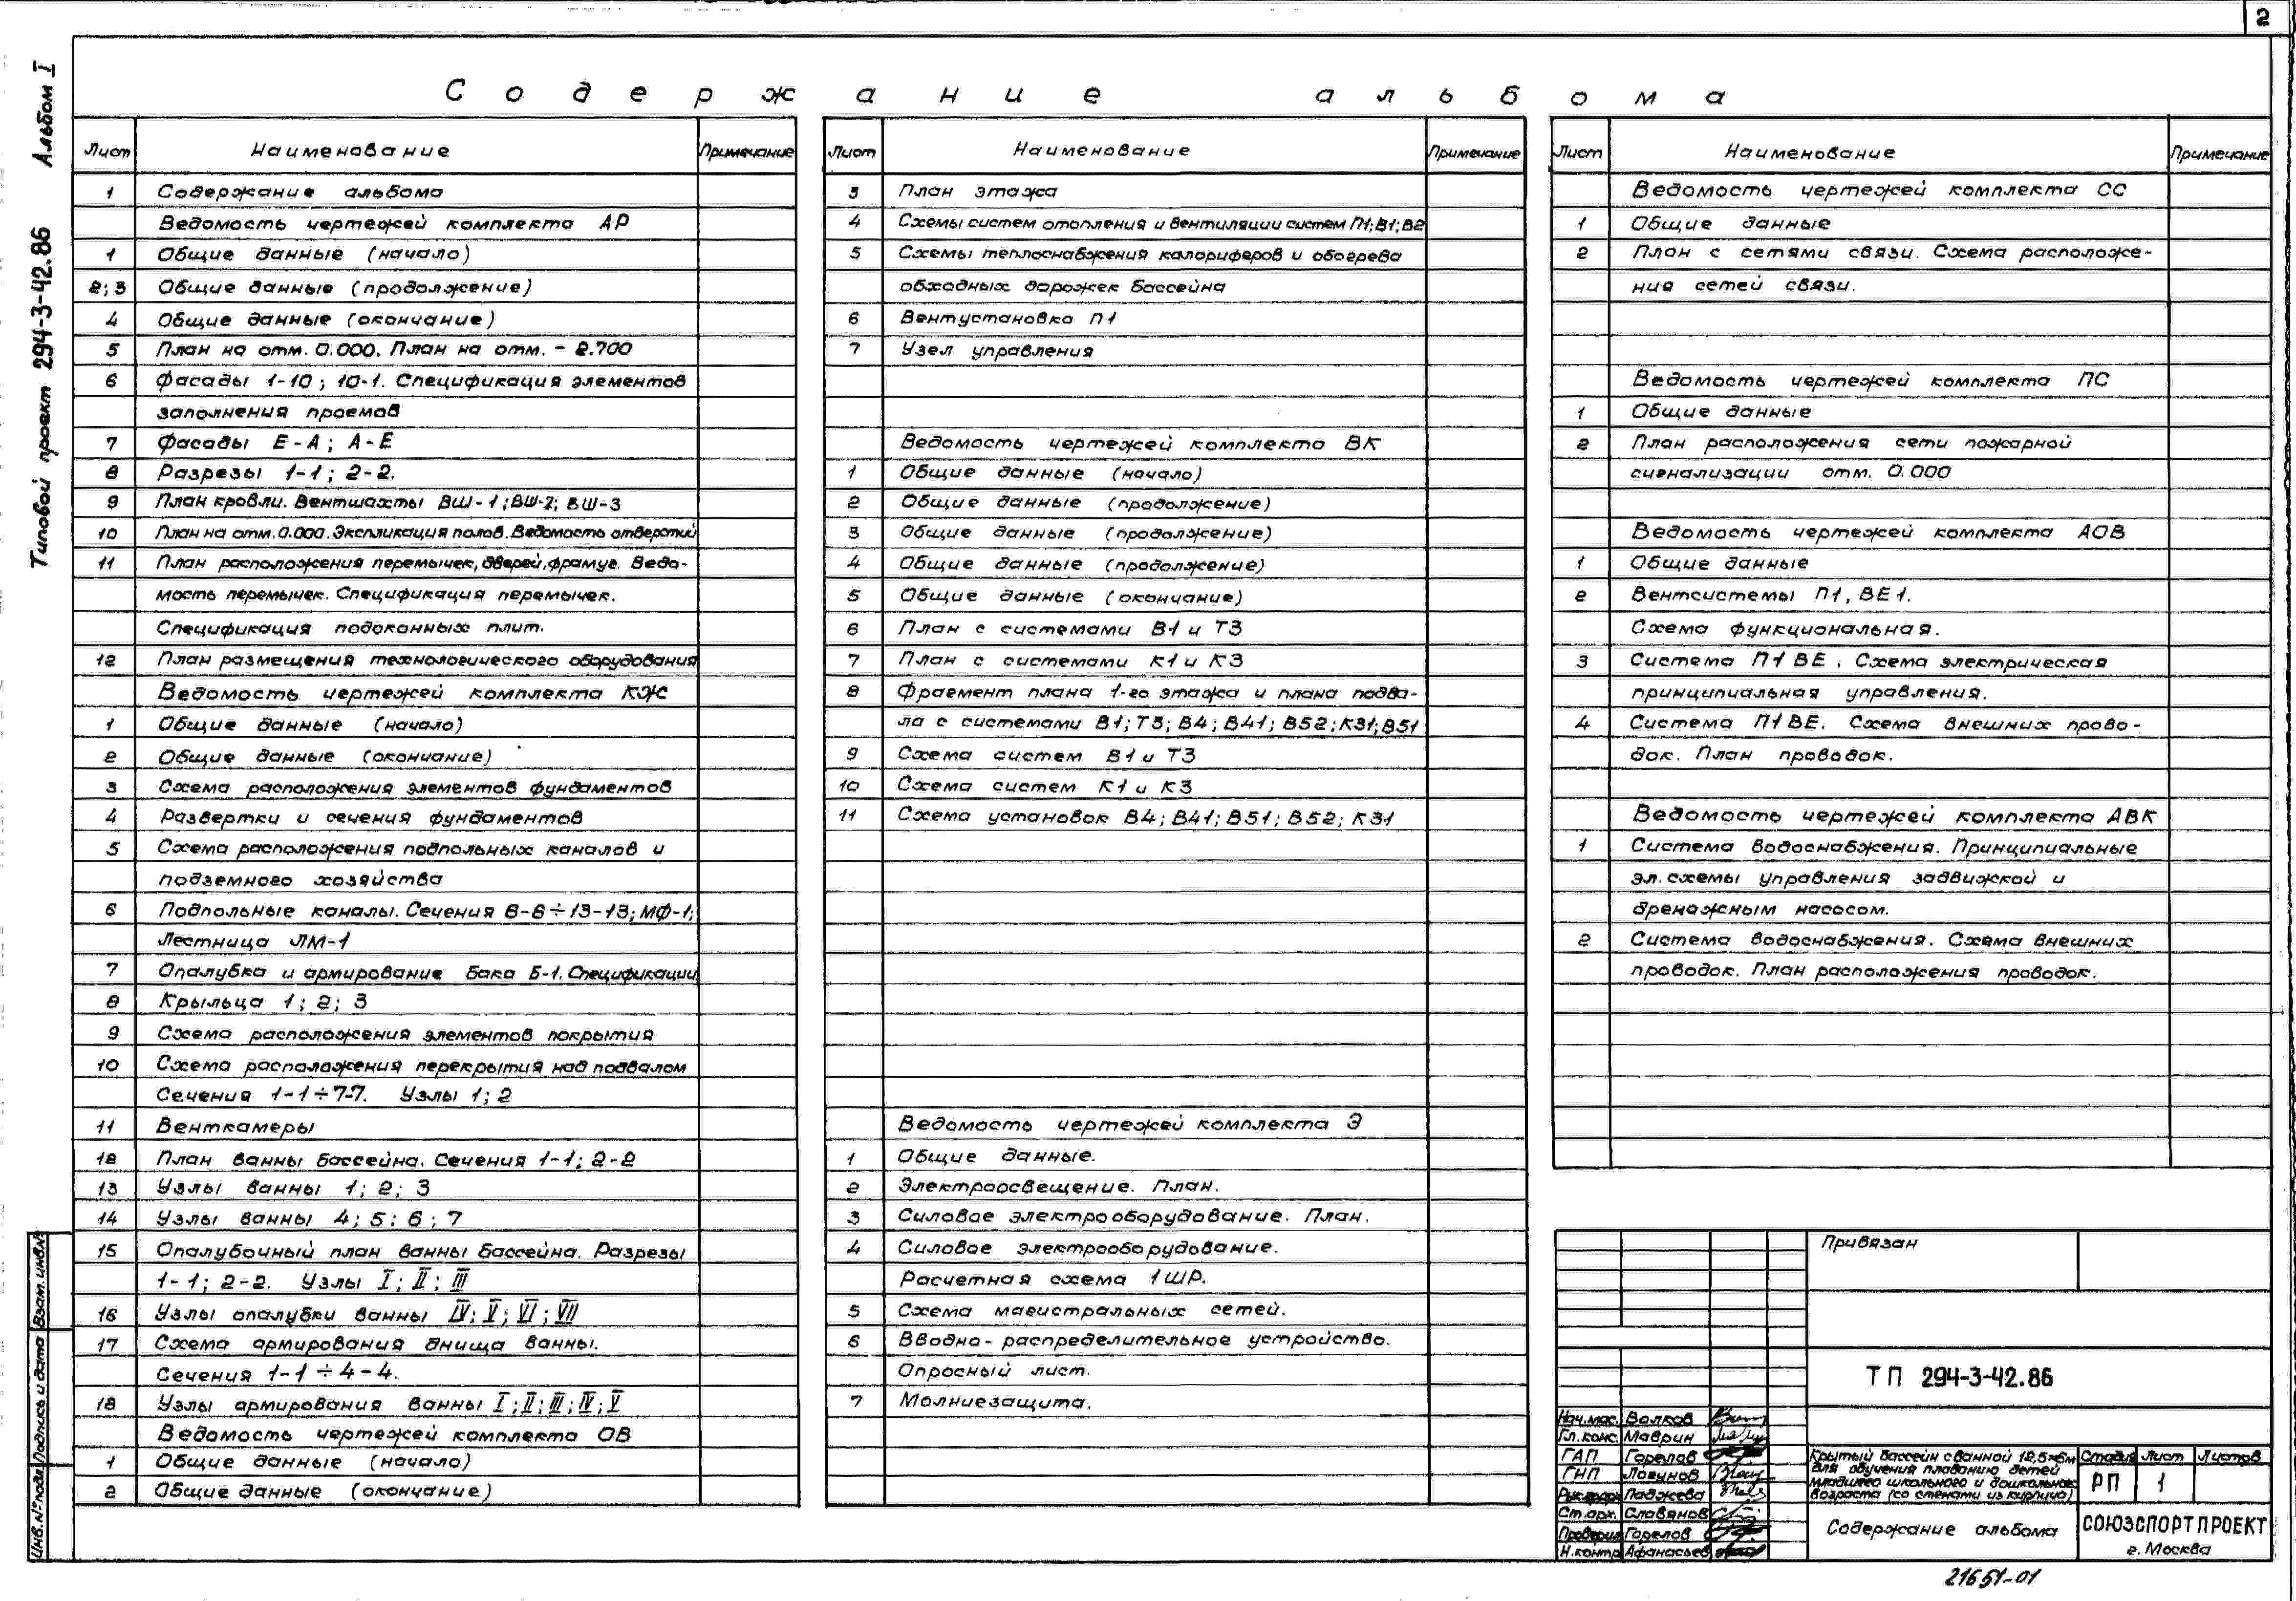 2
Типовой проект 294-3-42.86 Альбом I
Содержание альбома
Лист Наименование Примечание
1 Содержание альбома
Ведомость чертежей комплекта АР
1 Общие данные (начало)
2; 3 Общие данные (продолжение)
4 Общие данные (окончание)
5 План на отм. 0.000. План на отм. - 2.700
6 Фасады 1-10; 10-1. Спецификация элементов
заполнения проемов
7 Фасады Е-А; А-Е
8 Разрезы 1-1; 2-2.
9 План кровли. Вентшахты ВШ-1; ВШ-2; ВШ-3
10 План на отм. 0.000. Экспликация полов. Ведомость отверстий
11 План расположения перемычек, дверей, фрамуг. Ведо-
мость перемычек. Спецификация перемычек.
Спецификация подоконных плит.
12 План размещения технологического оборудования
Ведомость чертежей комплекта КЖ
1 Общие данные (начало)
2 Общие данные (окончание)
3 Схема расположения элементов фундаментов
4 Развертки и сечения фундаментов
5 Схема расположения подпольных каналов и
подземного хозяйства
6 Подпольные каналы. Сечения 6-6÷13-13; МФ-1;
Лестница ЛМ-1
7 Опалубка и армирование бака Б-1. Спецификации
8 Крыльца 1; 2; 3
9 Схема расположения элементов покрытия
10 Схема расположения перекрытия над подвалом
Сечения 1-1÷7-7. Узлы 1; 2
11 Венткамеры
12 План ванны бассейна. Сечения 1-1; 2-2
13 Узлы ванны 1; 2; 3
14 Узлы ванны 4; 5; 6; 7
15 Опалубочный план ванны бассейна. Разрезы
1-1; 2-2. Узлы I; II; III
16 Узлы опалубки ванны IV; V; VI; VII
17 Схема армирования днища ванны.
Сечения 1-1÷4-4.
18 Узлы армирования ванны I; II; III; IV; V
Ведомость чертежей комплекта ОВ
1 Общие данные (начало)
2 Общие данные (окончание)
Лист Наименование Примечание
3 План этажа
4 Схемы систем отопления и вентиляции систем П1; В1; В2
5 Схемы теплоснабжения калориферов и обогрева
обходных дорожек бассейна
6 Вентустановка П1
7 Узел управления
Ведомость чертежей комплекта ВК
1 Общие данные (начало)
2 Общие данные (продолжение)
3 Общие данные (продолжение)
4 Общие данные (продолжение)
5 Общие данные (окончание)
6 План с системами В1 и Т3
7 План с системами К1 и К3
8 Фрагмент плана 1-го этажа и плана подва-
ла с системами В1; Т3; В4; В41; В52; К31; В51
9 Схема систем В1 и Т3
10 Схема систем К1 и К3
11 Схема установок В4; В41; В51; В52; К31
Ведомость чертежей комплекта Э
1 Общие данные.
2 Электроосвещение. План.
3 Силовое электрооборудование. План.
4 Силовое электрооборудование.
Расчетная схема 1ШР.
5 Схема магистральных сетей.
6 Вводно-распределительное устройство.
Опросный лист.
7 Молниезащита.
Лист Наименование Примечание
Ведомость чертежей комплекта СС
1 Общие данные
2 План с сетями связи. Схема расположе-
ния сетей связи.
Ведомость чертежей комплекта ПС
1 Общие данные
2 План расположения сети пожарной
сигнализации отм. 0.000
Ведомость чертежей комплекта АОВ
1 Общие данные
2 Вентсистемы П1, ВЕ1.
Схема функциональная.
3 Система П1 ВЕ. Схема электрическая
принципиальная управления.
4 Система П1 ВЕ. Схема внешних прово-
док. План проводок.
Ведомость чертежей комплекта АВК
1 Система водоснабжения. Принципиальные
эл. схемы управления задвижкой и
дренажным насосом.
2 Система водоснабжения. Схема внешних
проводок. План расположения проводок.
Привязан
ТП 294-3-42.86
Нач. мас. Волков
Гл. конс. Маврин
ГАП Горелов
ГИП Логунов
Ладжева
Ст. арх. Славянов
Проверил Горелов
Н. контр. Афанасьев
Крытый бассейн с ванной 12,5×6м
для обучения плаванию детей
младшего школьного и дошкольного
возраста (со стенами из кирпича)
Стадия Лист Листов
РП 1
Содержание альбома
СОЮЗСПОРТПРОЕКТ
г. Москва
21651-01
Инв. № подл. Подпись и дата Взам. инв. №